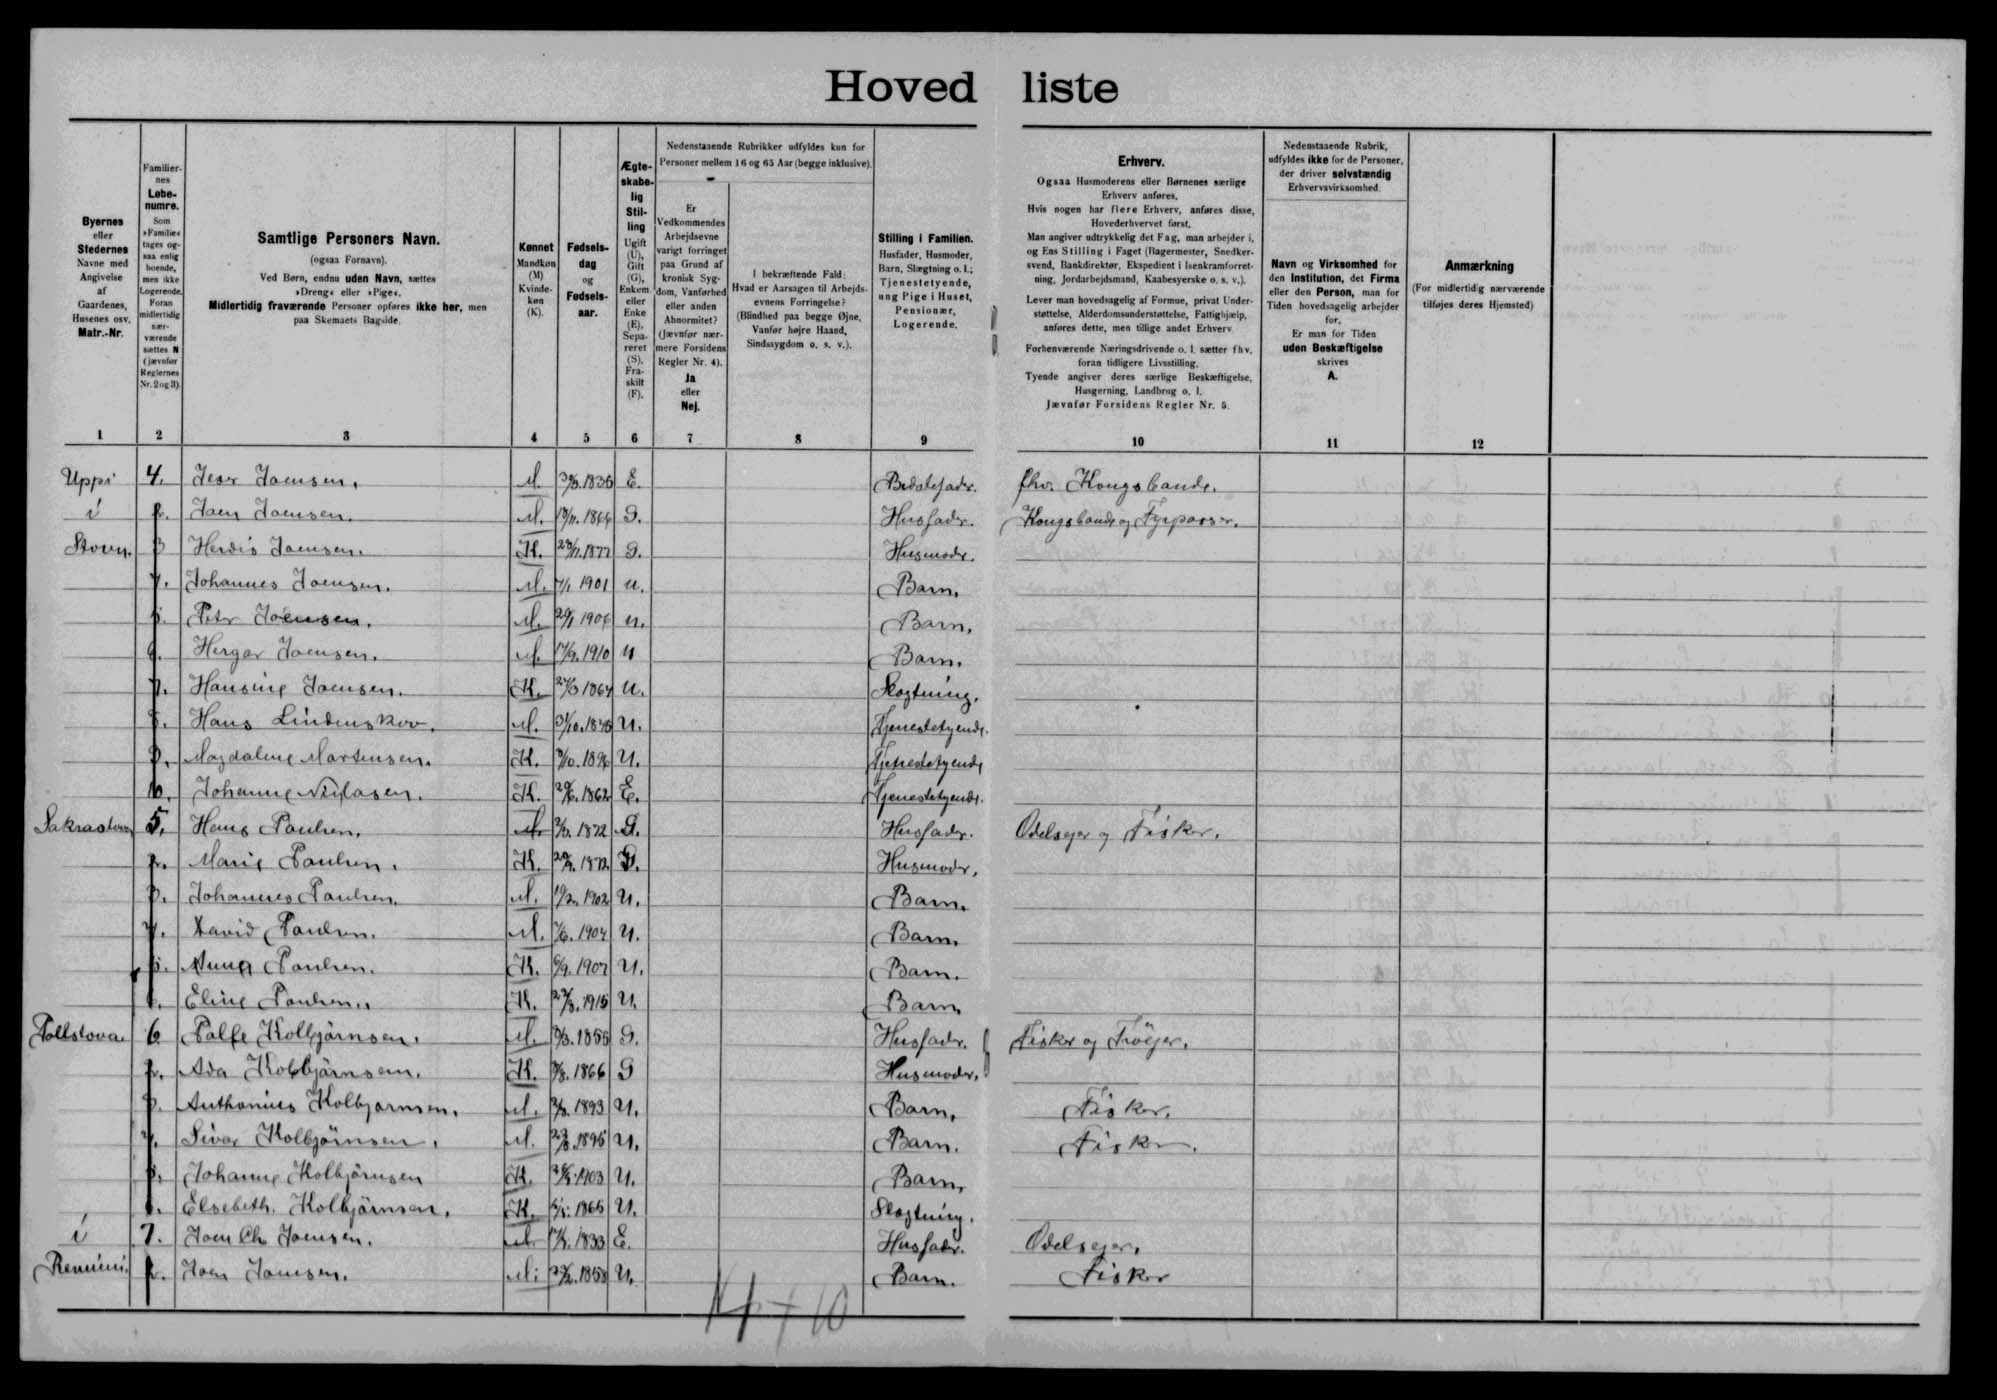 Hoved liste
Byernes
eller
Stedernes
Navne med
Angivelse
af
Gaardenes,
Husenes osv.
Matr.-Nr.
Familier-
nes
Løbe-
numre.
Som
»Familie«
tages og-
saa enlig
boende,
men ikke
Logerende.
Foran
midlertidig
nær-
værende
sættes N
(jævnfør
Reglernes
Nr. 2 og 3).
Samtlige Personers Navn.
(ogsaa Fornavn).
Ved Børn, endnu uden Navn, sættes
»Dreng« eller »Pige«.
Midlertidig fraværende Personer opføres ikke her, men
paa Skemaets Bagside.
Kønnet
Mandkøn
(M)
Kvinde-
køn
(K).
Fødsels-
dag
og
Fødsels-
aar.
Ægte-
skabe-
lig
Stil-
ling
Ugift
(U),
Gift
(G),
Enkem.
eller
Enke
(E),
Sepa-
reret
(S),
Fra-
skilt
(F).
Nedenstaaende Rubrikker udfyldes kun for
Personer mellem 16 og 65 Aar (begge inklusive).
Er
Vedkommendes
Arbejdsevne
varigt forringet
paa Grund af
kronisk Syg-
dom, Vanførhed
eller anden
Abnormitet?
(Jævnfør nær-
mere Forsidens
Regler Nr. 4).
Ja
eller
Nej.
I bekræftende Fald:
Hvad er Aarsagen til Arbejds-
evnens Forringelse?
(Blindhed paa begge Øjne,
Vanfør højre Haand,
Sindssygdom o. s. v.).
Stilling i Familien.
Husfader, Husmoder,
Barn, Slægtning o. l.;
Tjenestetyende,
ung Pige i Huset,
Pensionær,
Logerende.
Erhverv.
Ogsaa Husmoderens eller Børnenes særlige
Erhverv anføres.
Hvis nogen har flere Erhverv, anføres disse,
Hovederhvervet først.
Man angiver udtrykkelig det Fag, man arbejder i,
og Ens Stilling i Faget (Bagermester, Snedker-
svend, Bankdirektør, Ekspedient i Isenkramforret-
ning, Jordarbejdsmand, Kaabesyerske o. s. v.).
Lever man hovedsagelig af Formue, privat Under-
støttelse, Alderdomsunderstøttelse, Fattighjælp,
anføres dette, men tillige andet Erhverv.
Forhenværende Næringsdrivende o. l. sætter fhv.
foran tidligere Livsstilling.
Tyende angiver deres særlige Beskæftigelse,
Husgerning, Landbrug o. l.
Jævnfør Forsidens Regler Nr. 5.
Nedenstaaende Rubrik,
udfyldes ikke for de Personer,
der driver selvstændig
Erhvervsvirksomhed.
Navn og Virksomhed for
den Institution, det Firma
eller den Person, man for
Tiden hovedsagelig arbejder
for.
Er man for Tiden
uden Beskæftigelse
skrives
A.
Anmærkning
(For midlertidig nærværende
tilføjes deres Hjemsted)
1 2 3 4 5 6 7 8 9 10 11 12
Uppi 4. Joensen. M. E. Bedstefader. fhv. Kongsbonde.
í 2. Joen Joensen. M. G. Husfader. Kongsbonde og Fyrpasser.
Stovu. 3 Herdis Joensen. K. G. Husmoder.
4. Johannes Joensen. M. 7/1 1901 U. Barn.
5. Peter Joensen. M. U. Barn.
6. Joensen. M. 17/9. 1910 U Barn.
7. Hansine Joensen. K. U. Slægtning.
8. Hans Lindenskov. M. U. Tjenestetyende.
9. Magdalene Martensen. K. U. Tjenestetyende
10. Johanne K. 1862 E. Tjenestetyende.
5. Hans Paulsen. M. 1872 G. Husfader. Odelsejer og Fisker.
2. Marie Paulsen. K. 1872 G. Husmoder.
3. Johannes Paulsen. M. 19/2. 1902 U. Barn.
4. David Paulsen. M. U. Barn.
5. Anna Paulsen. K. U. Barn.
6. Eline Paulsen. K. U. Barn
6 Kolbjörnsen. M. G. Husfader. Fisker og
2. Ada Kolbjörnsen. K. 1866 G Husmoder.
3. Anthonius Kolbjörnsen. M. 1893 U. Barn. Fisker.
4. Kolbjörnsen. M. U. Barn. Fisker.
5. Johanne Kolbjörnsen K. 1903 U. Barn.
6. Elsebeth Kolbjörnsen. K. U. Slægtning.
í 7. Joen Ch. Joensen. M. 1833 E. Husfader. Odelsejer.
2. Joen Joensen. M. U. Barn. Fisker
14 + 10